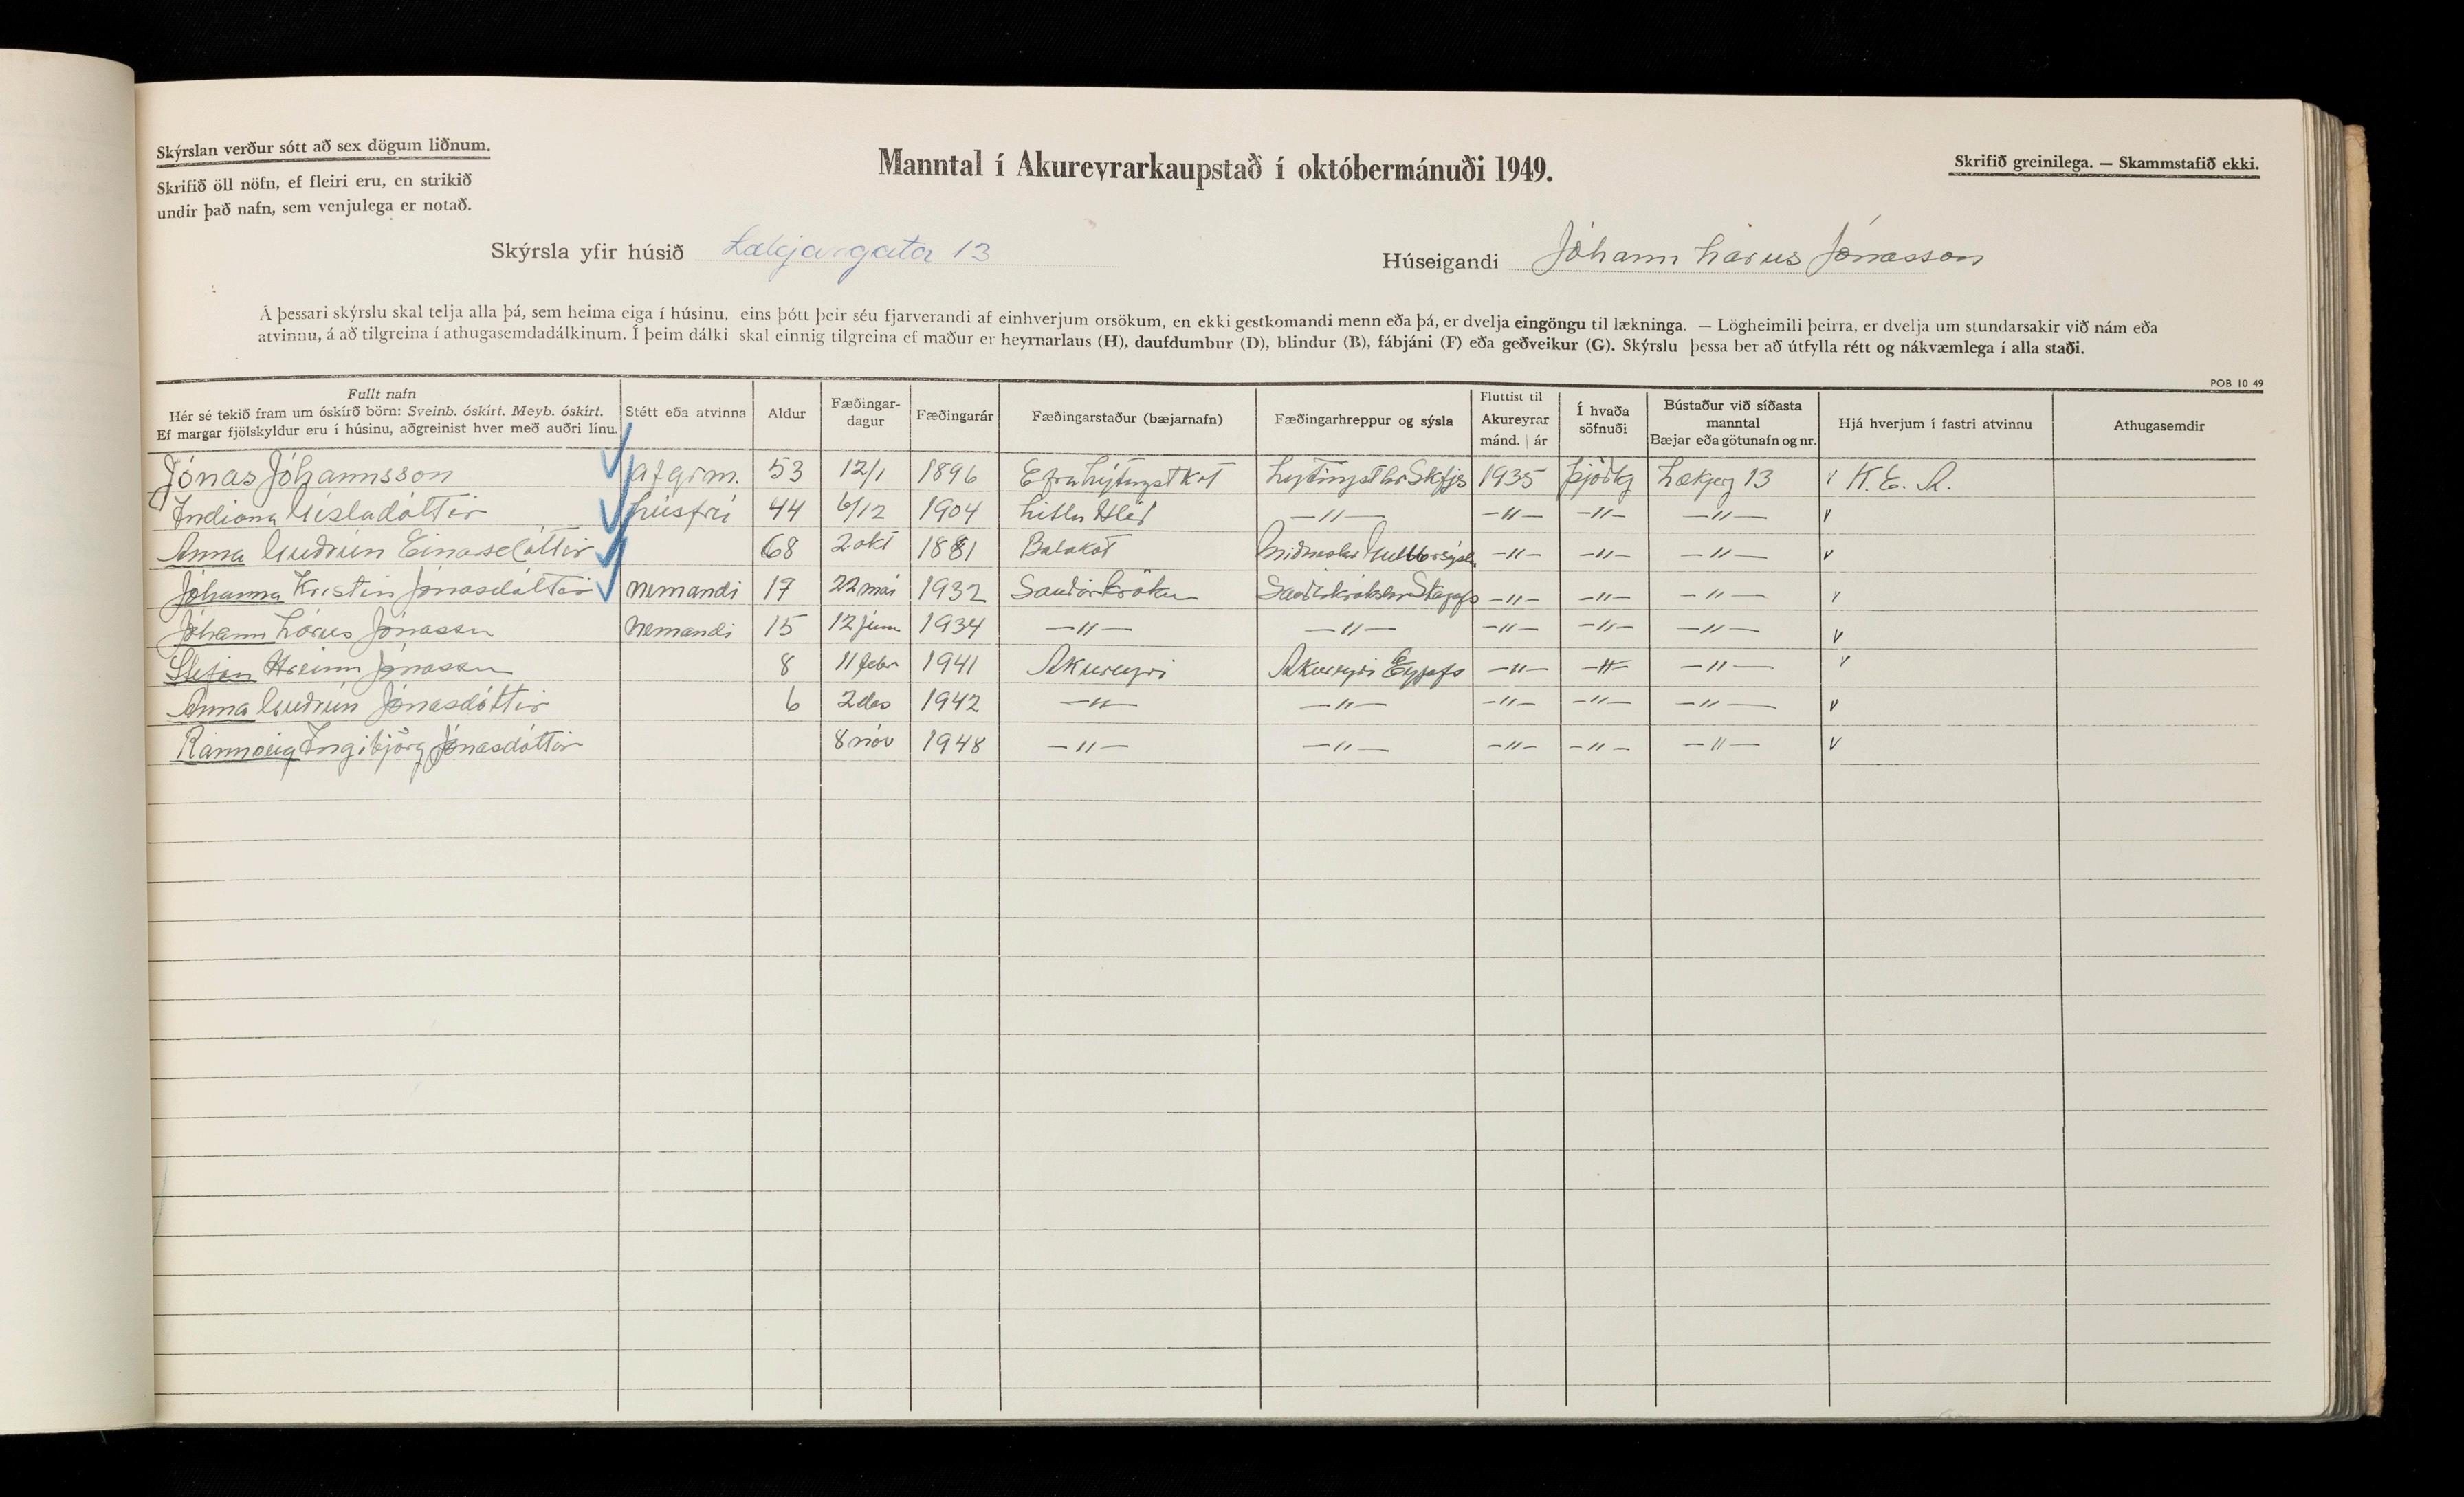 Skýrslan verður sótt að sex dögum liðnum.
Skrifið öll nöfn, ef fleiri eru, en strikið
undir það nafn, sem venjulega er notað.
Manntal í Akureyrarkaupstað í októbermánuði 1949.
Skrifið greinilega. — Skammstafið ekki.
Skýrsla yfir húsið Lækjargata 13
Húseigandi Jóhann Lárus Jónasson
Á þessari skýrslu skal telja alla þá, sem heima eiga í húsinu, eins þótt þeir séu fjarverandi af einhverjum orsökum, en ekki gestkomandi menn eða þá, er dvelja eingöngu til lækninga. — Lögheimili þeirra, er dvelja um stundarsakir við nám eða
atvinnu, á að tilgreina í athugasemdadálkinum. Í þeim dálki skal einnig tilgreina ef maður er heyrnarlaus (H), daufdumbur (D), blindur (B), fábjáni (F) eða geðveikur (G). Skýrslu þessa ber að útfylla rétt og nákvæmlega í alla staði.
POB 10 49
Fullt nafn
Hér sé tekið fram um óskírð börn: Sveinb. óskírt. Meyb. óskírt.
Ef margar fjölskyldur eru í húsinu, aðgreinist hver með auðri línu.
Stétt eða atvinna
Aldur
Fæðingar-
dagur
Fæðingarár
Fæðingarstaður (bæjarnafn)
Fæðingarhreppur og sýsla
Fluttist til
Akureyrar
mánd. | ár
Í hvaða
söfnuði
Bústaður við síðasta
manntal
Bæjar eða götunafn og nr.
Hjá hverjum í fastri atvinnu
Athugasemdir
Jónas Jóhannsson afgrm. 53 12/1 1896 1935 þjóðkj Lækjerg 13 " K. E. A.
Indiana Gísladóttir húsfrú 44 6/12 1904 Litlu Hlíð —"— —"— —"— —"— "
Anna Guðrún Einarsdóttir 68 2 okt 1881 Balakot —"— —"— —"— "
Jóhanna Kristín Jónasdóttir nemandi 17 22 maí 1932 Sauðárkróku —"— —"— —"— "
Jóhann Lárus Jónasson Nemandi 15 12 júní 1934 —"— —"— —"— —"— —"— "
Stefán Hreinn Jónasson 8 11 febr 1941 Akureyri Akureyri Eyjafs —"— —"— —"— "
Anna Guðrún Jónasdóttir 6 2 des 1942 —"— —"— —"— —"— —"— "
Rannveig Ingibjörg Jónasdóttir 8 nóv 1948 —"— —"— —"— —"— —"— "